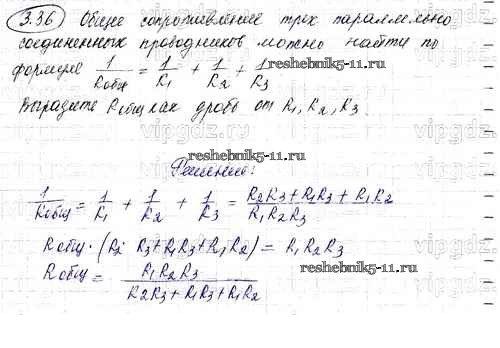 3.36 Общее сопротивление трёх параллельно
соединенных проводников можно найти по
формуле 1/Rобщ = 1/R1 + 1/R2 + 1/R3
reshebnik5-11.ru
Выразите Rобщ как дробь от R1, R2, R3.
reshebnik5-11.ru
Решение:
1/Rобщ = 1/R1 + 1/R2 + 1/R3 = R2R3 + R1R3 + R1R2 / R1R2R3
Rобщ · (R2 · R3 + R1R3 + R1R2) = R1R2R3
Rобщ = R1R2R3 / R2R3 + R1R3 + R1R2
reshebnik5-11.ru